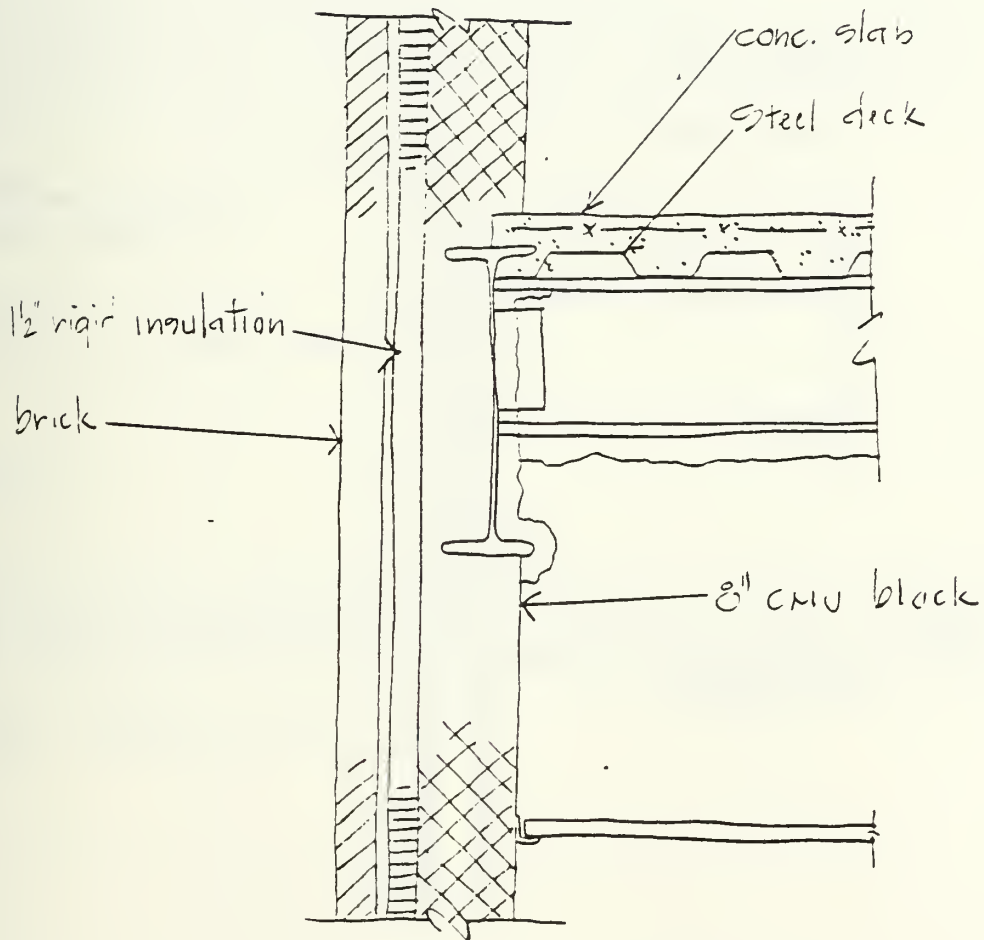 conc. slab
steel deck
1½" rigid insulation
brick
8" CMU block